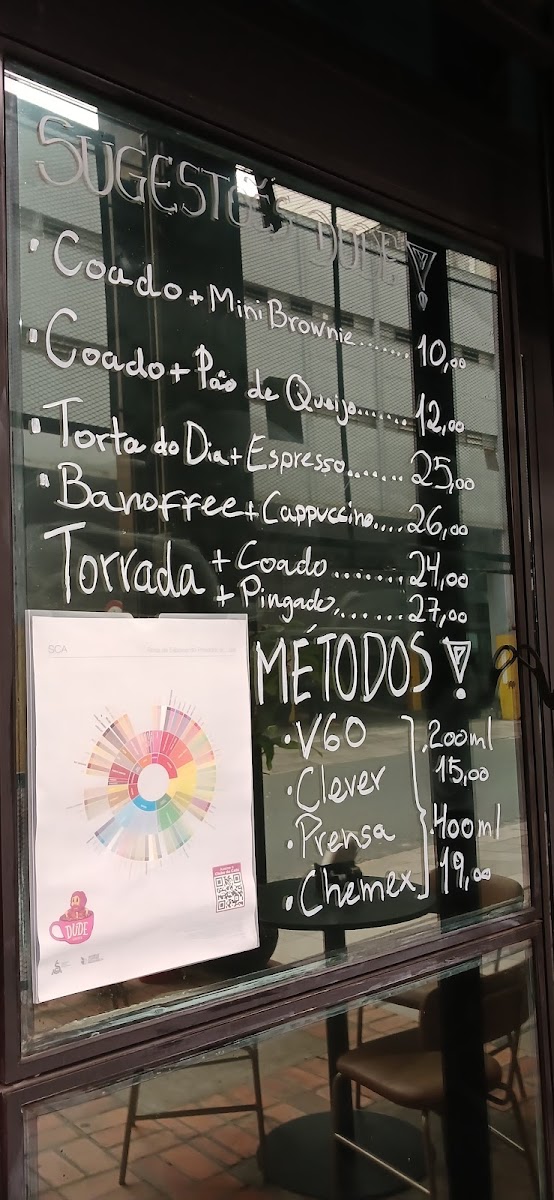 SUGESTÕES DUDE
• Coado + Mini Brownie....... 10,00
• Coado + Pão de Queijo...... 12,00
• Torta do Dia + Espresso....... 25,00
• Banoffee + Cappuccino.... 26,00
Torrada + Coado....... 24,00
+ Pingado....... 27,00
MÉTODOS
• V60
• Clever
• Prensa
• Chemex
.200ml
15,00
.400ml
19,00
SCA
DUDE